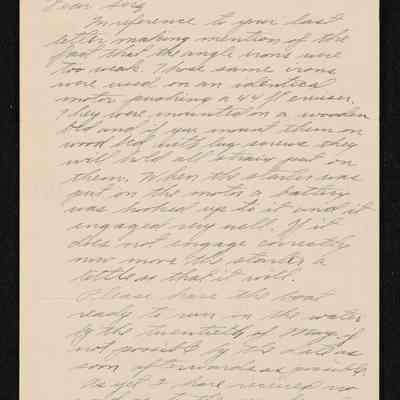 Dear Sirs
In reference to your last
letter making mention of the
fact that the angle irons were
too weak. Those same irons
were used on an identical
motor pushing a 44 ft cruiser.
They were mounted on a wooden
bed and if you mount them on
wood bed with lug screws they
will hold all strain put on
them. When the starter was
put on the motor a battery
was hooked up to it and it
engaged very well. If it
does not engage correctly
now move the starter a
little so that it will.
Please have the boat
ready to run in the water
by the twentieth of May, if
not possible by the date as
soon afterwards as possible.
As yet I have received no